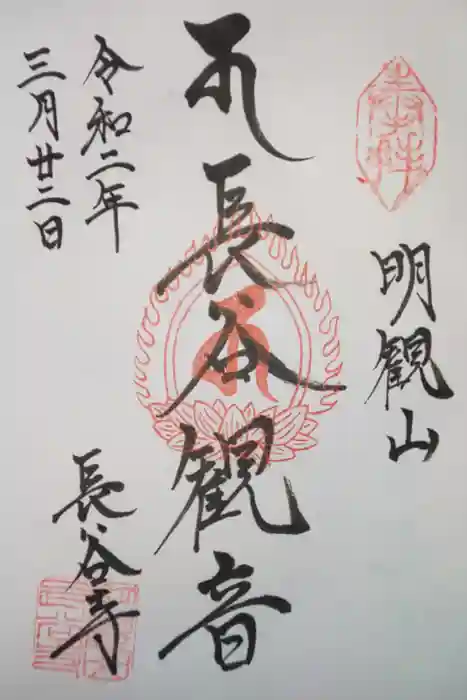 奉拝
明観山
長谷観音
令和二年
三月廿二日
長谷寺